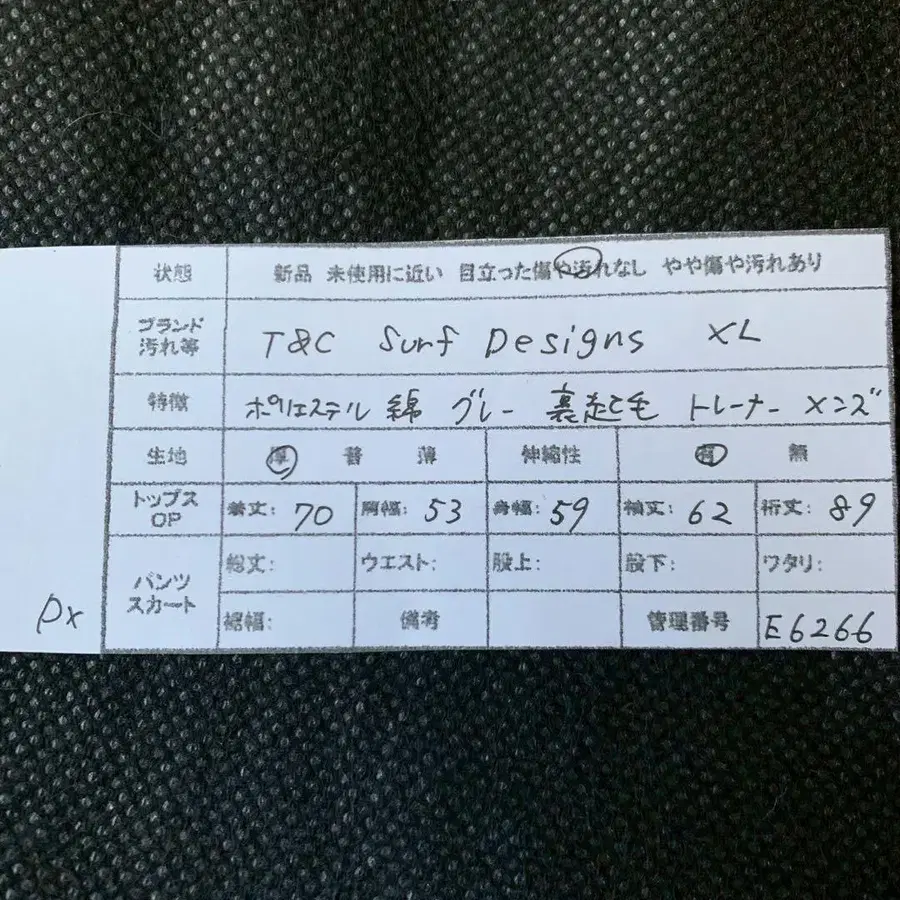 状態 新品 未使用に近い 目立った傷や汚れなし やや傷や汚れあり
ブランド
汚れ等
T&C Surf Designs XL
特徴 ポリエステル 綿 グレー 裏起毛 トレーナー メンズ
生地 厚 普 薄 伸縮性 有 無
トップス
OP
着丈: 70 肩幅: 53 身幅: 59 袖丈: 62 裄丈: 89
パンツ
スカート
総丈: ウエスト: 股上: 股下: ワタリ:
裾幅: 備考 管理番号 E6266
Px